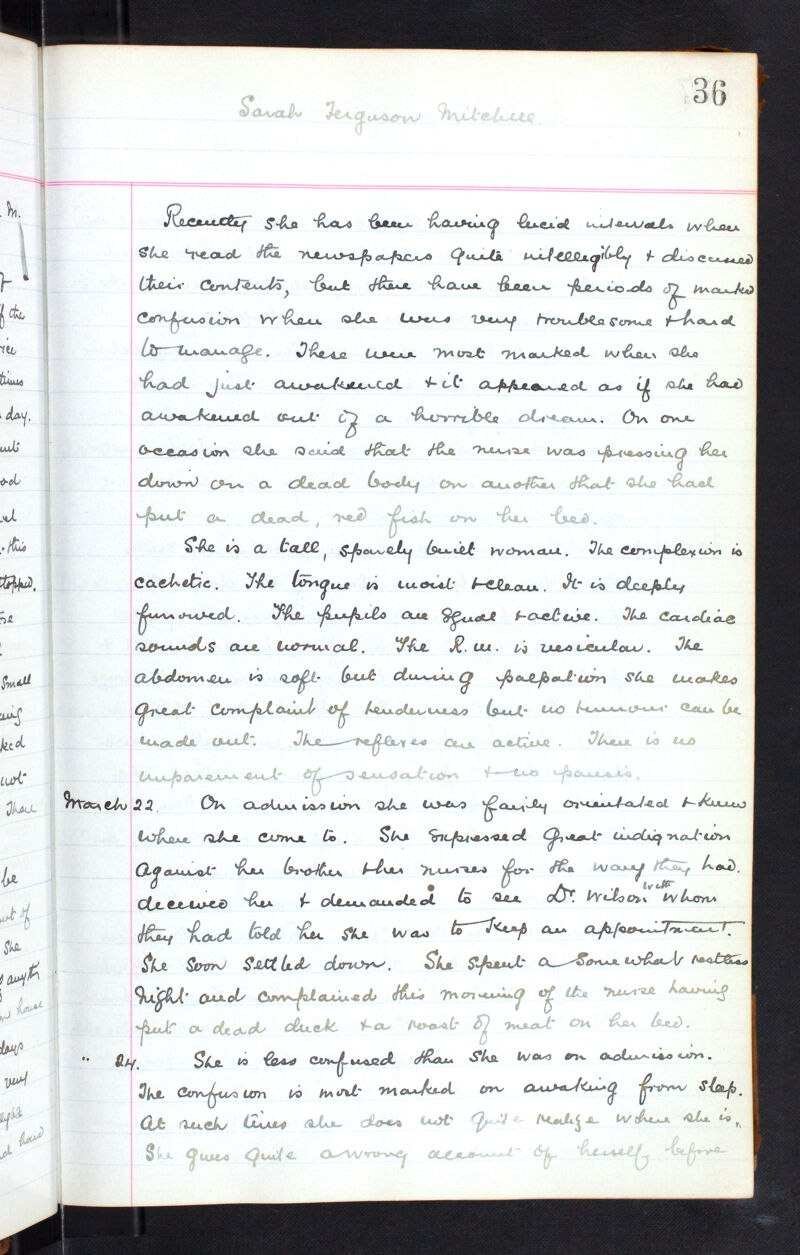 36
Sarah Ferguson Mitchell.
Recently she has been having lucid intervals when
she read the newspapers quite intellegibly & discussed
their contents, but there have been periods of marked
confusion when she was very troublesome & hard
to manage. These were most marked when she
had just awakened & it appeared as if she had
awakened out of a horrible dream. On one
occasion she said that the nurse was pressing her
down on a dead body on another that she had
put a dead, red fish on her bed.
She is a tall, sparely built woman. The complexion is
cachetic. The tongue is moist & clean. It is deeply
furrowed. The pupils are equal & active. The cardiac
sounds are normal. The R.m. is vesicular. The
abdomen is soft but during palpation she makes
great complaint of tenderness but no tumour can be
made out. The reflexes are active. There is no
imparement of sensation & no paresis.
March 22. On admission she was fairly orientated & knew
where she come to. She expressed great indignation
against her brother & her nurses for the way they had
deceived her & demanded to see Dr. Wilson with whom
they had told her she was to keep an appointment.
She soon settled down. She spent a somewhat restless
night and complained this morning of the nurse having
put a dead duck & a roast of meat on her bed.
" 24. She is less confused than she was on admission.
The confusion is most marked on awaking from sleep.
At such times she does not quite realize where she is.
She gives quite a wrong account of herself before
M.
f the
times
day.
this
stopped.
Small
ked
not
There
be
out of
She
house
days
very
hard